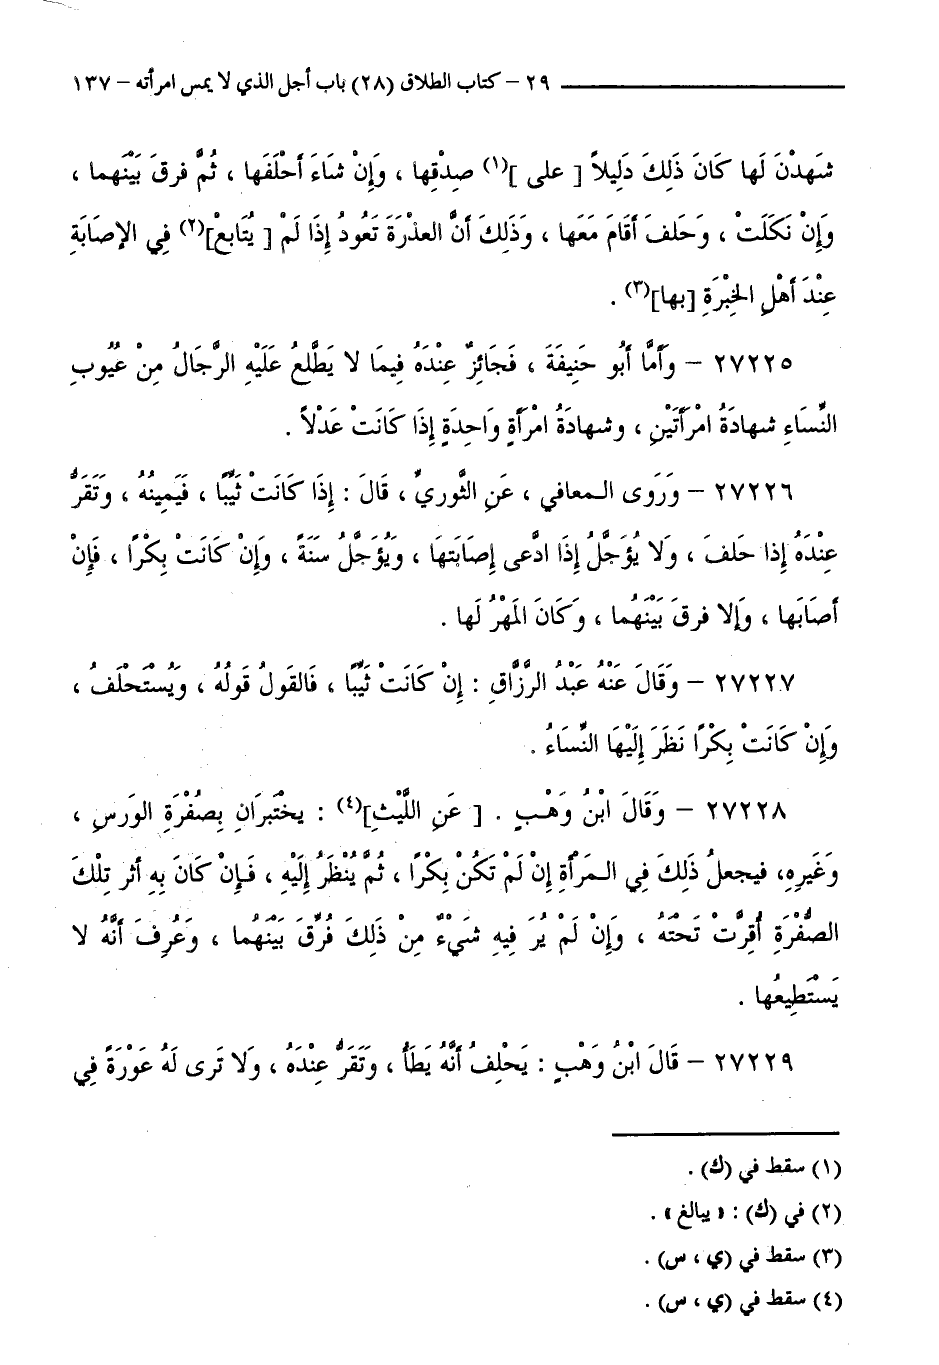 ٢٩ – كتاب الطلاق (٢٨) باب أجل الذي لا يمس امرأته – ١٣٧
شَهِدْنَ لَها كَانَ ذَلِكَ دَلِيلاً [ على ](١) صِدْقِها ، وَإِنْ شَاءَ أَحْلَفَها ، ثُمَّ فرقَ بَيْنَهما ،
وَإِنْ نَكَلَتْ ، وَحَلفَ أَقَامَ مَعَها ، وَذَلِكَ أَنَّ العذْرَةَ تَعُودُ إِذَا لَمْ [ يُتَابعْ](٢) فِي الإصَابَةِ
عِنْدَ أَهْلِ الخِبْرَةِ [بها](٣) .
٢٧٢٢٥ – وَأَمَّا أَبُو حَنِيفَةَ ، فَجَائِزٌ عِنْدَهُ فِيمَا لا يَطَّلعُ عَلَيْهِ الرِّجَالُ مِنْ عُيُوبِ
النِّسَاءِ شهادَةُ امْرَأَتَيْنِ ، وشهادَةُ امْرَأَةٍ وَاحِدَةٍ إِذَا كَانَتْ عَدْلاً .
٢٧٢٢٦ – وَرَوى المعافي ، عَنِ الثَّوريِّ ، قَالَ : إِذَا كَانَتْ ثَيِّبًا ، فَيَمِينُهُ ، وَتَقَرُّ
عِنْدَهُ إِذا حَلفَ ، وَلا يُؤَجَّلُ إِذَا ادَّعى إِصَابَتهَا ، وَيُؤَجَّلُ سَنَةً ، وَإِنْ كَانَتْ بِكْرًا ، فَإِنْ
أصَابَها ، وَإِلا فرقَ بَيْنَهُما ، وَكَانَ المَهْرُ لَها .
٢٧٢٢٧ – وَقَالَ عَنْهُ عَبْدُ الرَّزَّاقِ : إِنْ كَانَتْ ثَيِّبًا ، فَالقَولُ قَولُهُ ، وَيُسْتَحْلَفُ ،
وَإِنْ كَانَتْ بِكْرًا نَظَرَ إِلَيْهَا النِّسَاءُ .
٢٧٢٢٨ – وَقَالَ ابْنُ وَهْبٍ . [ عَنِ اللَّيْثِ](٤) : يختْبَرَانِ بِصُفْرَةِ الوَرسِ ،
وَغَيرِهِ، فيجعلُ ذَلِكَ فِي المَرْأَةِ إِنْ لَمْ تَكُنْ بِكْرًا ، ثُمَّ يُنْظَرُ إِلَيْهِ ، فَإِنْ كَانَ بِهِ أثر تِلْكَ
الصُّفْرَةِ أُقِرَّتْ تَحْتَهُ ، وَإِنْ لَمْ يُرَ فِيهِ شَيْءٌ مِنْ ذَلِكَ فُرِّقَ بَيْنَهُما ، وَعُرِفَ أَنَّهُ لا
يَسْتَطِيعُها .
٢٧٢٢٩ – قَالَ ابْنُ وَهْبٍ : يَحْلِفُ أَنَّهُ يَطَأُ ، وَتَقَرُّ عِنْدَهُ ، وَلا تَرى لَهُ عَوْرَةً فِي
(١) سقط في (ك) .
(٢) في (ك) : « يبالغ » .
(٣) سقط في (ي ، س) .
(٤) سقط في (ي ، س) .